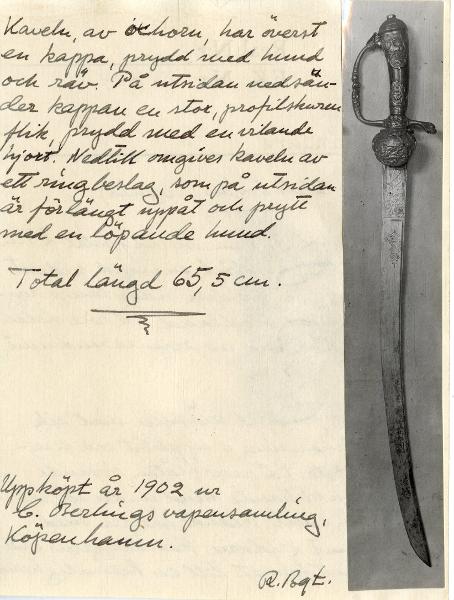 Kaveln, av horn, har överst
en kappa, prydd med hund
och räv. På utsidan nedsän-
der kappan en stor, profilskuren
flik, prydd med en vilande
hjort. Nedtill omgives kaveln av
ett ringbeslag, som på utsidan
är förlängt uppåt och prytt
med en löpande hund.
Total längd 65,5 cm.
Uppköpt år 1902 ur
C. Østerlings vapensamling,
Köpenhamn.
R. Bgt.